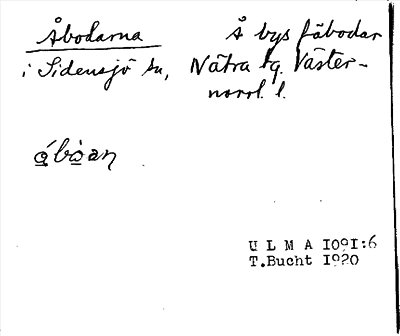 Åbodarna Å bys fäbodar
i Sidensjö sn, Nätra tg. Väster-
norrl. l.
ǫ́bò̱an
U L M A 1091:6
T.Bucht 1920